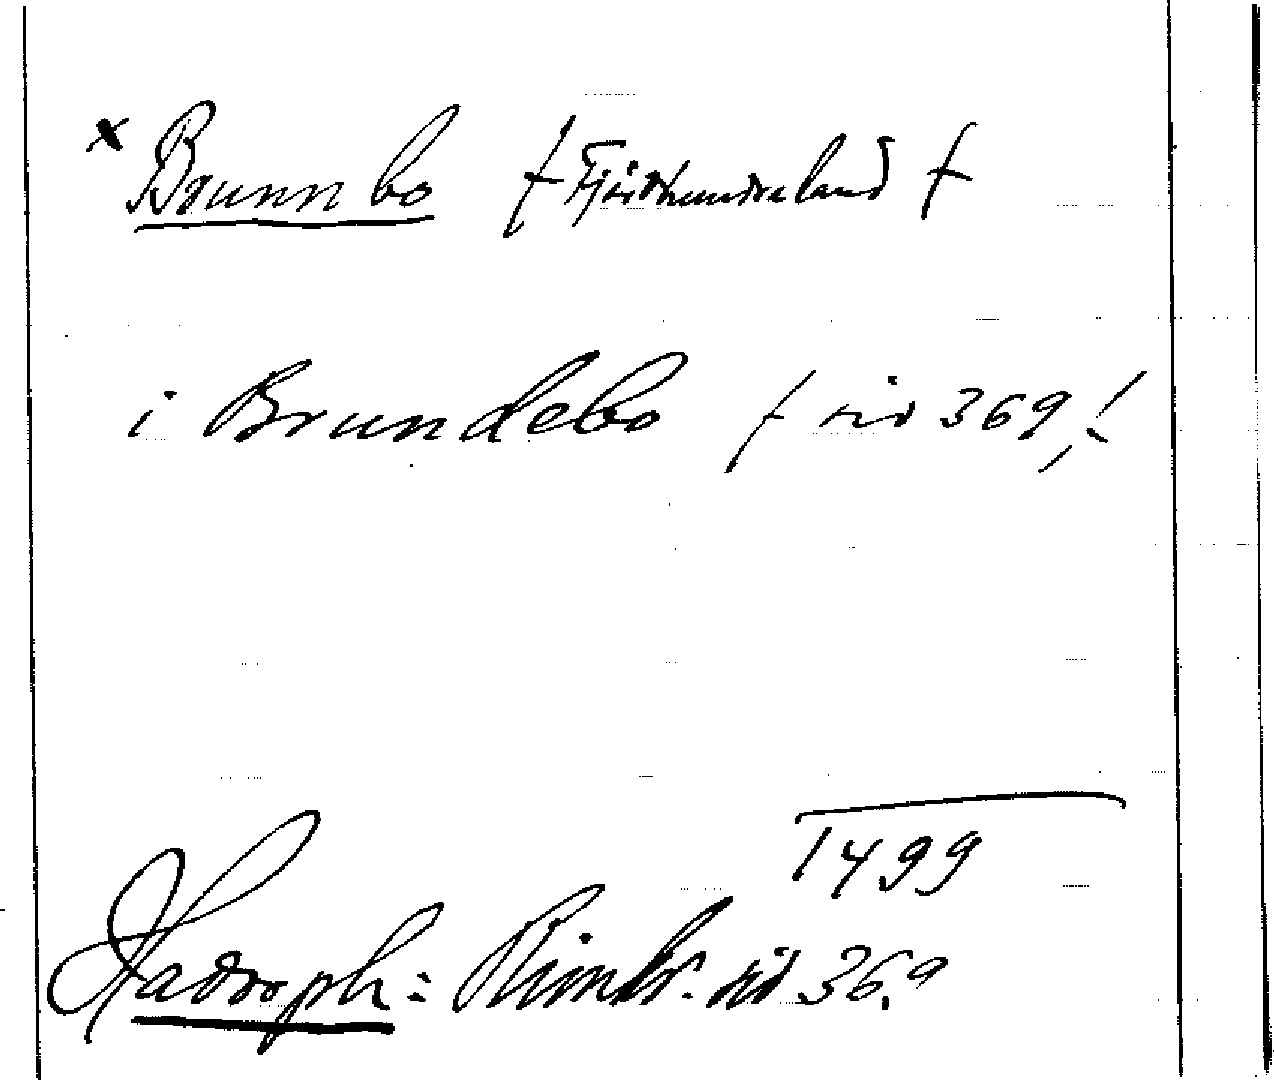 x Brunnbo f Fjärdhundraland f
i Brundebo f sid 369, !
1499
Hadorph: Rimkr. sid 369